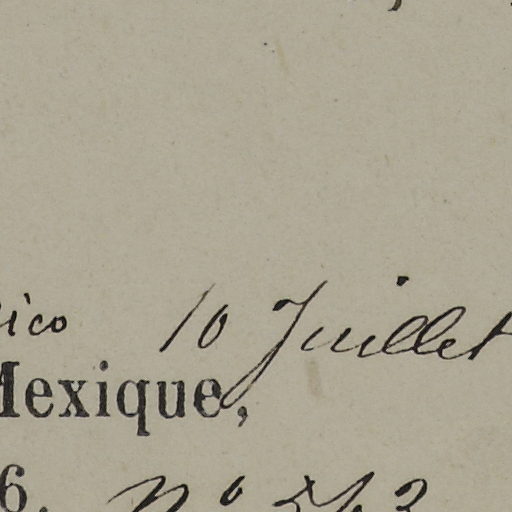 ico 10 Juillet
Mexique,
6. Nº 563